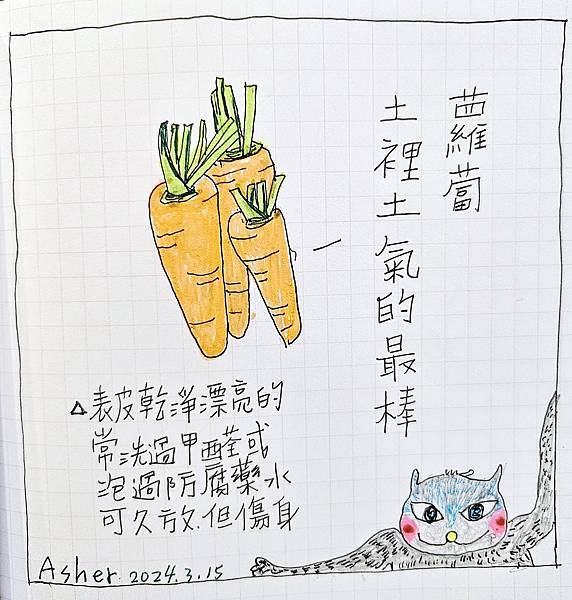 蘿蔔
土裡土氣的最棒
△表皮乾淨漂亮的
常洗過甲醛或
泡過防腐藥水
可久放.但傷身
Asher. 2024.3.15